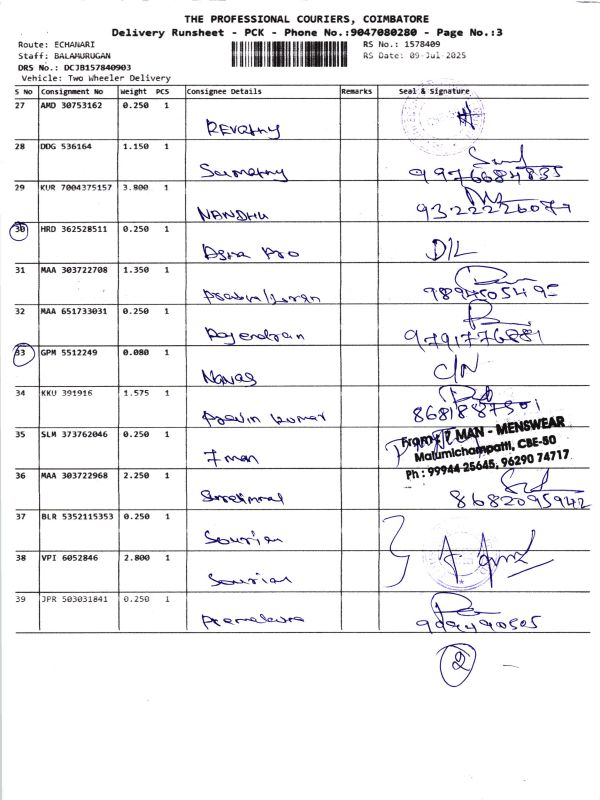 THE PROFESSIONAL COURIERS, COIMBATORE
Delivery Runsheet - PCK - Phone No.:9047080280 - Page No.:3
Route: ECHANARI RS No.: 1578409
Staff: BALAMURUGAN RS Date: 09-Jul-2025
DRS No.: DCJB157840903
Vehicle: Two Wheeler Delivery
S No Consignment No Weight PCS Consignee Details Remarks Seal & Signature
27 AMD 30753162 0.250 1
REVathy
28 DDG 536164 1.150 1
Sumathy 9976684835
29 KUR 7004375157 3.800 1
NANDHU 9322226077
30 HRD 362528511 0.250 1
Agra Pro D/L
31 MAA 303722708 1.350 1
9894505495
32 MAA 651733031 0.250 1
Rajendran 9791776881
33 GPM 5512249 0.080 1
Navas C/N
34 KKU 391916 1.575 1
Pravin kumar 8681887501
35 SLM 373762046 0.250 1
7 man
From : 7 MAN - MENSWEAR
Malumichampatti, CBE-50
Ph : 99944 25645, 96290 74717
36 MAA 303722968 2.250 1
8682095942
37 BLR 5352115353 0.250 1
38 VPI 6052846 2.800 1
39 JPR 503031841 0.250 1
2